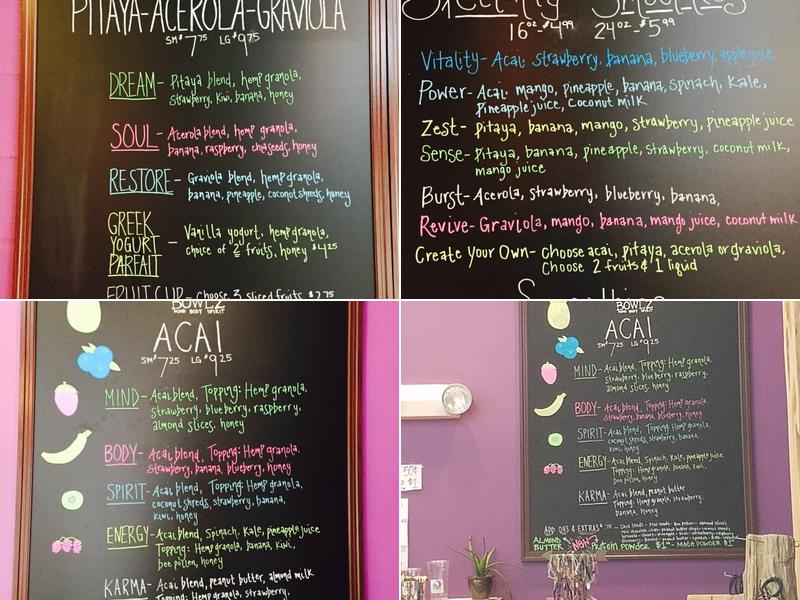 PITAYA-ACEROLA-GRAVIOLA
SM $7.75 LG $9.75
DREAM - Pitaya blend, hemp granola,
Strawberry, Kiwi, banana, honey
SOUL - Acerola blend, hemp granola,
banana, raspberry, chiaseeds, honey
RESTORE - Graviola blend, hemp granola,
banana, pineapple, coconut shreds, honey
GREEK
YOGURT
PARFAIT
- Vanilla yogurt, hemp granola,
choice of 2 fruits, honey $4.25
FRUIT CUP - Choose 3 sliced fruits $2.75
Smoothies
16oz - $4.99 24oz - $5.99
Vitality - Acai, strawberry, banana, blueberry, apple juice
Power - Acai, mango, pineapple, banana, Spinach, Kale,
Pineapple juice, coconut milk
Zest - pitaya, banana, mango, strawberry, pineapple juice
Sense - Pitaya, banana, pineapple, strawberry, coconut milk,
mango juice
Burst - Acerola, strawberry, blueberry, banana,
Revive - Graviola, mango, banana, mango juice, coconut milk
Create Your Own - choose acai, pitaya, acerola or graviola,
Choose 2 fruits & 1 liquid
BOWLZ
MIND BODY SPIRIT
ACAI
SM $7.25 LG $9.25
MIND - Acai blend, Topping: Hemp granola,
strawberry, blueberry, raspberry,
almond slices, honey
BODY - Acai blend, Topping: Hemp granola,
Strawberry, banana, blueberry, honey
SPIRIT - Acai blend, Topping: Hemp granola,
coconut shreds, strawberry, banana,
Kiwi, honey
ENERGY - Acai blend, Spinach, Kale, pineapple juice
Topping: Hemp granola, banana, Kiwi,
bee pollen, honey
KARMA - Acai blend, peanut butter, almond milk
Topping: Hemp granola, strawberry,
BOWLZ
MIND BODY SPIRIT
ACAI
SM $7.25 LG $9.25
MIND - Acai blend, Topping: Hemp granola,
strawberry, blueberry, raspberry,
almond slices, honey
BODY - Acai blend, Topping: Hemp granola,
Strawberry, banana, blueberry, honey
SPIRIT - Acai blend, Topping: Hemp granola,
coconut shreds, strawberry, banana,
Kiwi, honey
ENERGY - Acai blend, Spinach, Kale, pineapple juice
Topping: Hemp granola, banana, Kiwi,
bee pollen, honey
KARMA - Acai blend, peanut butter
Topping: Hemp granola, strawberry,
banana, honey
ADD ONS & EXTRAS $.75
ALMOND
BUTTER
PROTEIN POWDER $1 - MACA POWDER $1
50¢
$1